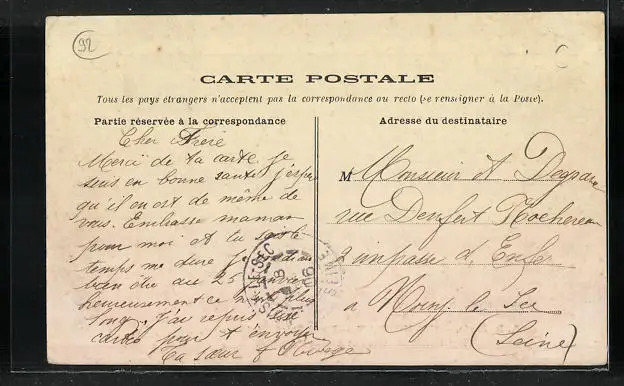 92
CARTE POSTALE
Tous les pays étrangers n'acceptent pas la correspondance au recto (se renseigner à la Poste).
Partie réservée à la correspondance
Adresse du destinataire
Cher Frère
Merci de ta carte je
suis en bonne santé j'espère
qu'il en est de même de
vous. Embrasse maman
pour moi et tu sais le
temps me dure je
bien être au 25 janvier
heureusement ce plus
long. J'ai repris
cartes pour t'envoyer
Ta sœur
M Monsieur A
rue Denfert Rochereau
2 impasse d'
à Noisy le Sec
(Seine)